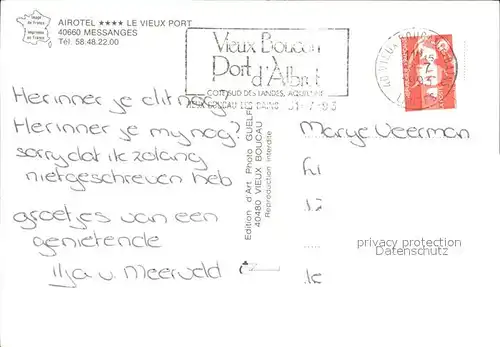 Image de France
Imprimée en France
AIROTEL ★★★★ LE VIEUX PORT
40660 MESSANGES
Tél. 58.48.22.00
Vieux Boucau
Port d'Albret
COTE SUD DES LANDES, AQUITAINE
VIEUX BOUCAU LES BAINS 31-7-93
Herinner je dit nog?
Herinner je my nog?
sorry dat ik zolang
niet geschreven heb
groetjes van een
genietende
Ilja v. Meerveld
Edition d'Art Photo GUELF
40480 VIEUX BOUCAU
Reproduction interdite
Marye Veerman
privacy protection
Datenschutz